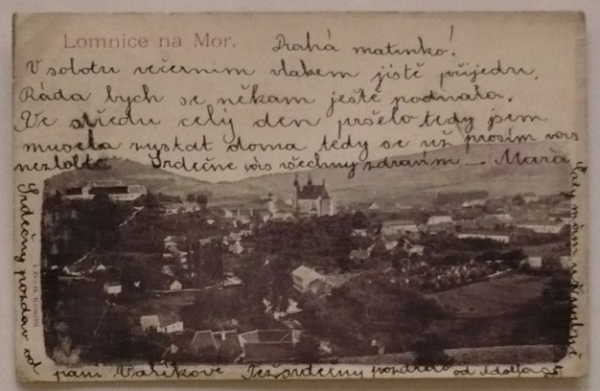 Lomnice na Mor.
Drahá matinko!
V sobotu večerním vlakem jistě přijedu.
Ráda bych se někam ještě podívala.
Ve středu celý den pršelo tedy jsem
musela zůstat doma tedy se už prosím vás
nezlobte. Srdečně vás všechny zdravím – Mařa
Srdečný pozdrav od
paní Vašíkové Též srdečný pozdrav od Adolfa